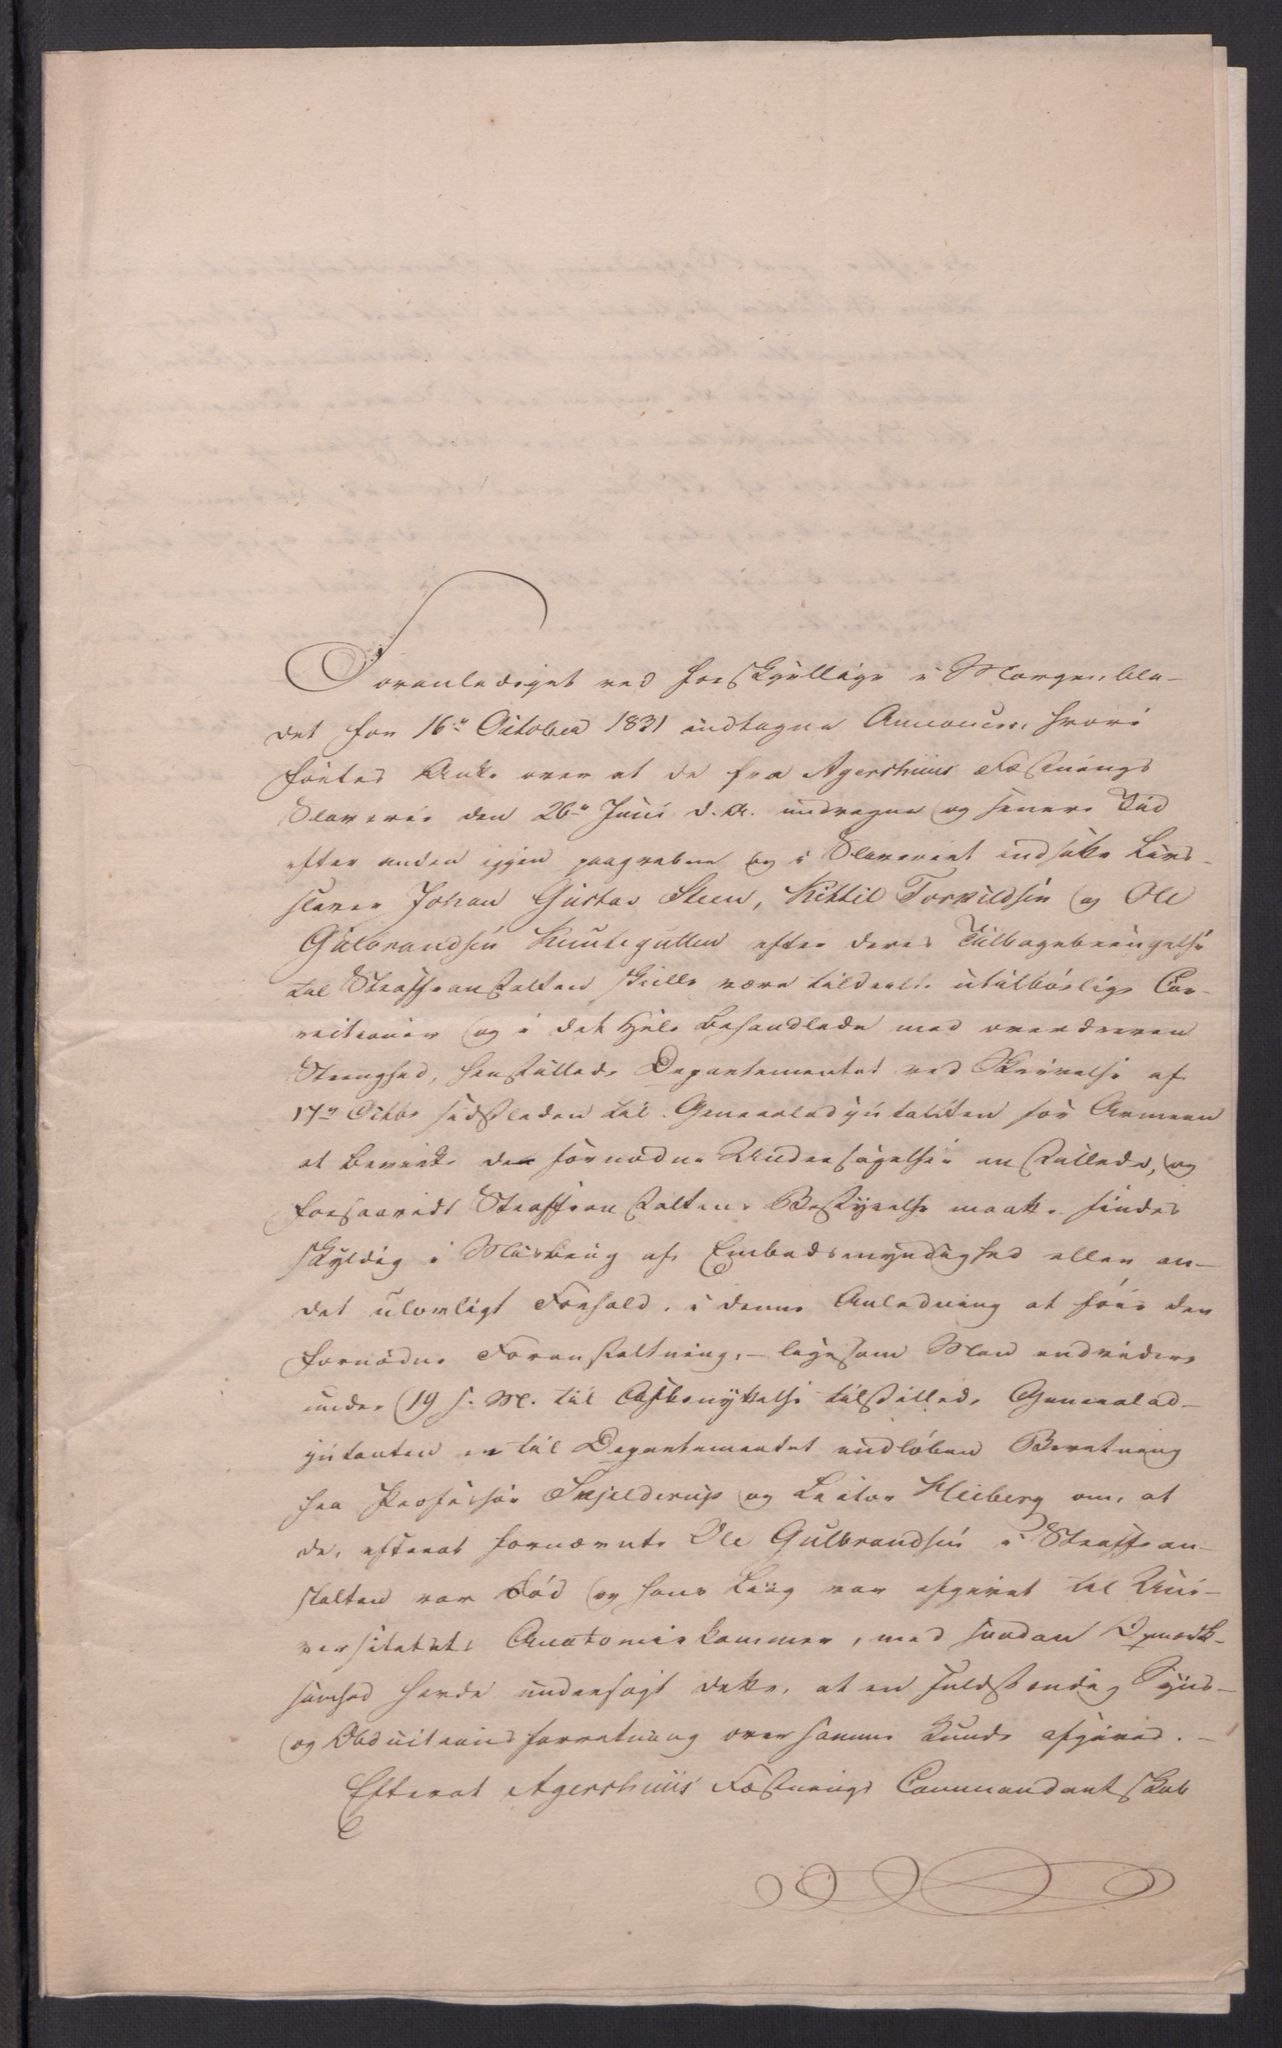 Foranlediget ved forskjellige i Morgenbla-
det for 16de October 1831 indtagne Annoncer, hvori
føres Anke over at de fra Agershuus Fæstnings
Slaverie den 26de Juni d. A. undvegne og senere Tid
efter anden igjen paagrebne og i Slaveriet indsatte Livs-
slaver Johan Gustav Steen, Kittil Torkildsen og Ole
Gulbrandsen Knutegutten efter deres Tilbagebringelse
til Straffeanstalten skulle være tildeelte utilbørlige Cor-
rectioner og i det Hele behandlede med overdreven
Strenghed, henstillede Departementet ved Skrivelse af
17de Octbr sidstleden til Generaladjutanten for Armeen
at bevirke den fornødne Undersøgelse anstillede, og
forsaavidt Straffeanstaltens Bestyrelse maatte findes
skyldig i Misbrug af Embedsmyndighed eller an-
det ulovligt Forhold, i denne Anledning at føie den
fornødne Foranstaltning, – ligesom Man endvidere
under 19 s. M. til Afbenyttelse tilstillede Generalad-
jutanten en til Departementet indløben Beretning
fra Professor Skjelderup og Lector Heiberg om, at
de, efterat fornævnte Ole Gulbrandsen i Straffean-
stalten var død og hans Liig var afgivet til Uni-
versitetets Anatomiekammer, med saadan Opmærk-
somhed havde undersøgt dette, at en fuldstændig Syns-
og Obductionsforretning over samme kunde afgives. –
Efterat Agershuus Fæstnings Commandantskab